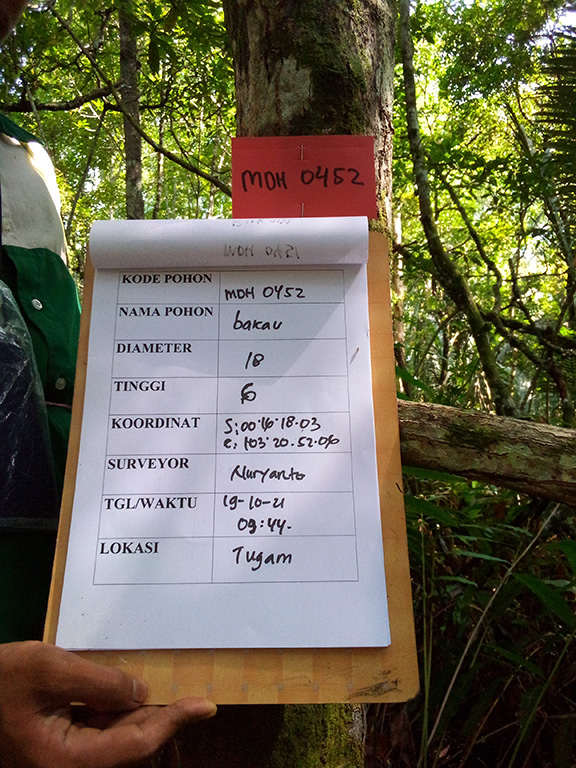 MDH 0452
KODE POHON MDH 0452
NAMA POHON bakau
DIAMETER 18
TINGGI 6
KOORDINAT S:00°16'18.03
E:103°20.52.06
SURVEYOR Nuryanto
TGL/WAKTU 19-10-21
09:44.
LOKASI Tugam